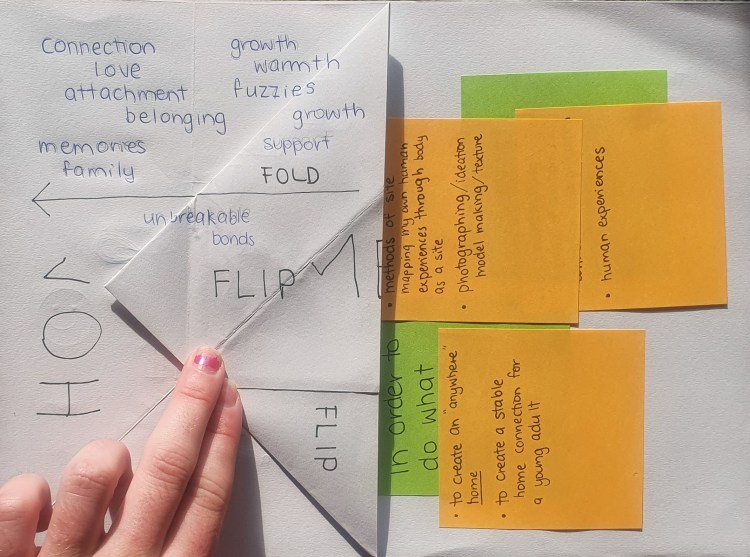 connection
love
attachment
belonging
memories
family
growth
warmth
fuzzies
growth
support
FOLD
unbreakable
bonds
FLIP
FLIP
HO
ME
• methods of site
mapping my own human
experiences through body
as a site
• photographing/ideation
model making/texture
• human experiences
in order to
do what
• to create an "anywhere"
home
• to create a stable
home connection for
a young adult